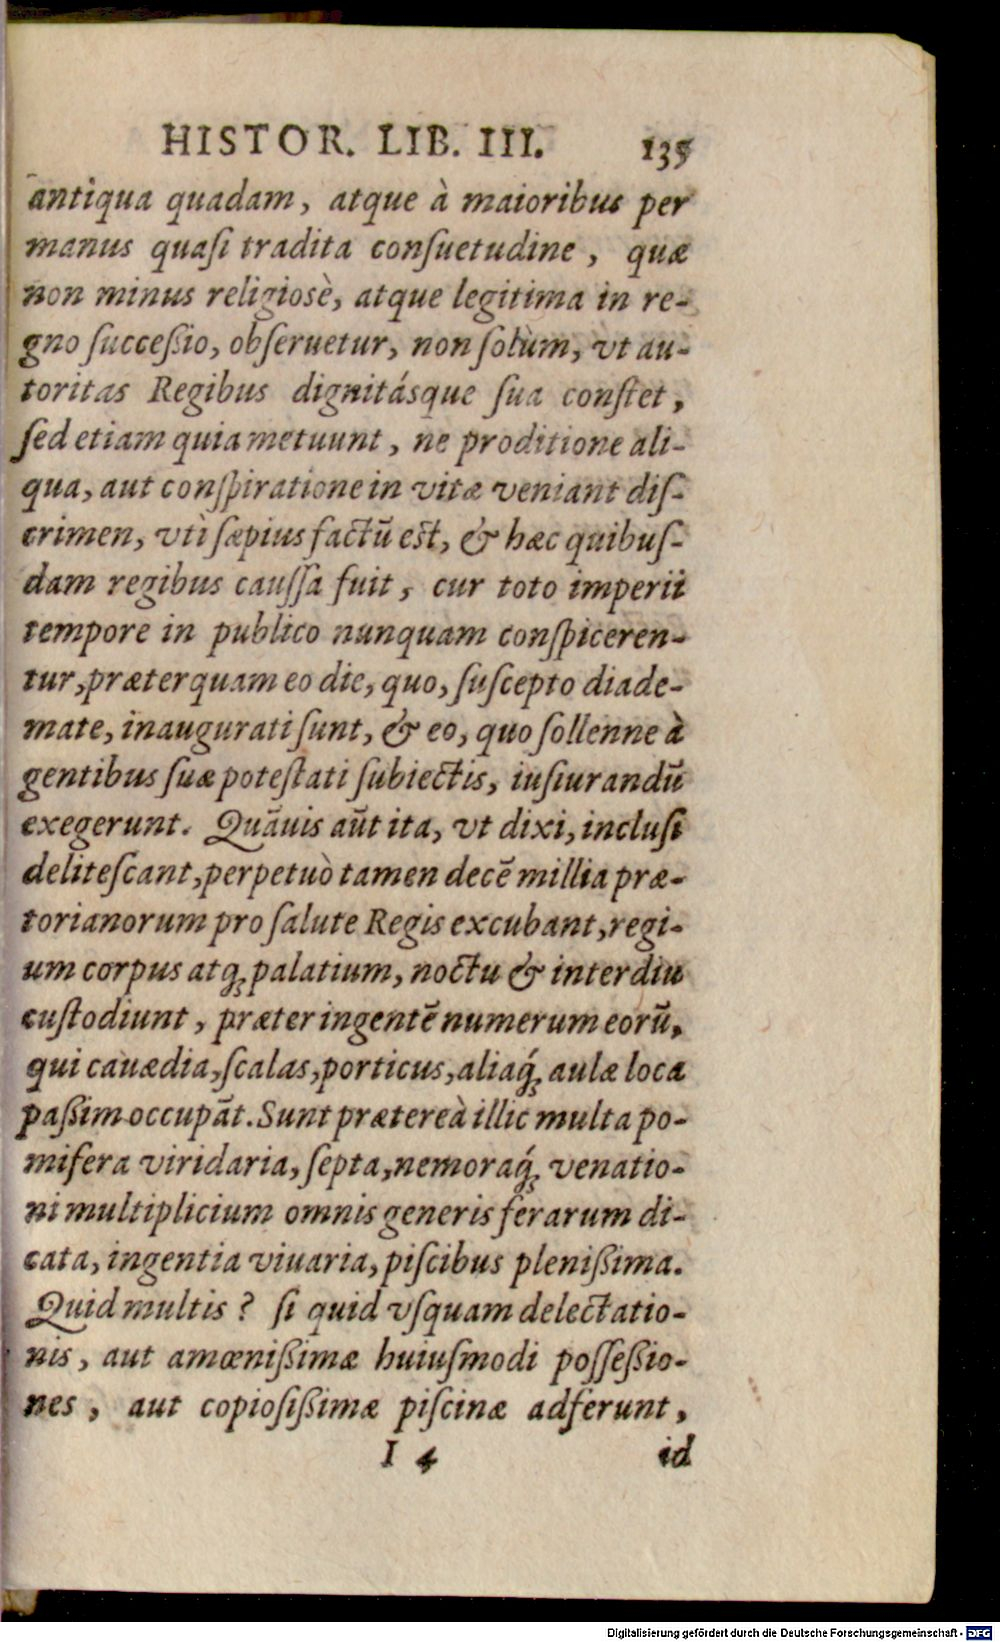 HISTOR. LIB. III. 135
antiqua quadam, atque à maioribus per
manus quaſi tradita conſuetudine, quæ
non minus religiosè, atque legitima in re-
gno ſucceßio, obſeruetur, non ſolùm, vt au-
toritas Regibus dignitásque ſua conſtet,
ſed etiam quia metuunt, ne proditione ali-
qua, aut conſpiratione in vitæ veniant diſ-
crimen, vtì ſæpius factũ est, & hæc quibuſ-
dam regibus cauſſa fuit, cur toto imperii
tempore in publico nunquam conſpiceren-
tur, præterquam eo die, quo, ſuſcepto diade-
mate, inaugurati ſunt, & eo, quo ſollenne à
gentibus ſuæ poteſtati ſubiectis, iuſiurandũ
exegerunt. Quãuis aũt ita, vt dixi, incluſi
deliteſcant, perpetuò tamen decẽ millia præ-
torianorum pro ſalute Regis excubant, regi-
um corpus atq; palatium, noctu & interdiu
cuſtodiunt, præter ingentẽ numerum eorũ,
qui cauædia, ſcalas, porticus, aliaq́; aulæ loca
paßim occupãt. Sunt prætereà illic multa po-
mifera viridaria, ſepta, nemoraq́; venatio-
ni multiplicium omnis generis ferarum di-
cata, ingentia viuaria, piſcibus plenißima.
Quid multis? ſi quid vſquam delectatio-
nis, aut amœnißimæ huiuſmodi poſſeßio-
nes, aut copioſißimæ piſcinæ adferunt,
I 4 id
Digitalisierung gefördert durch die Deutsche Forschungsgemeinschaft - DFG